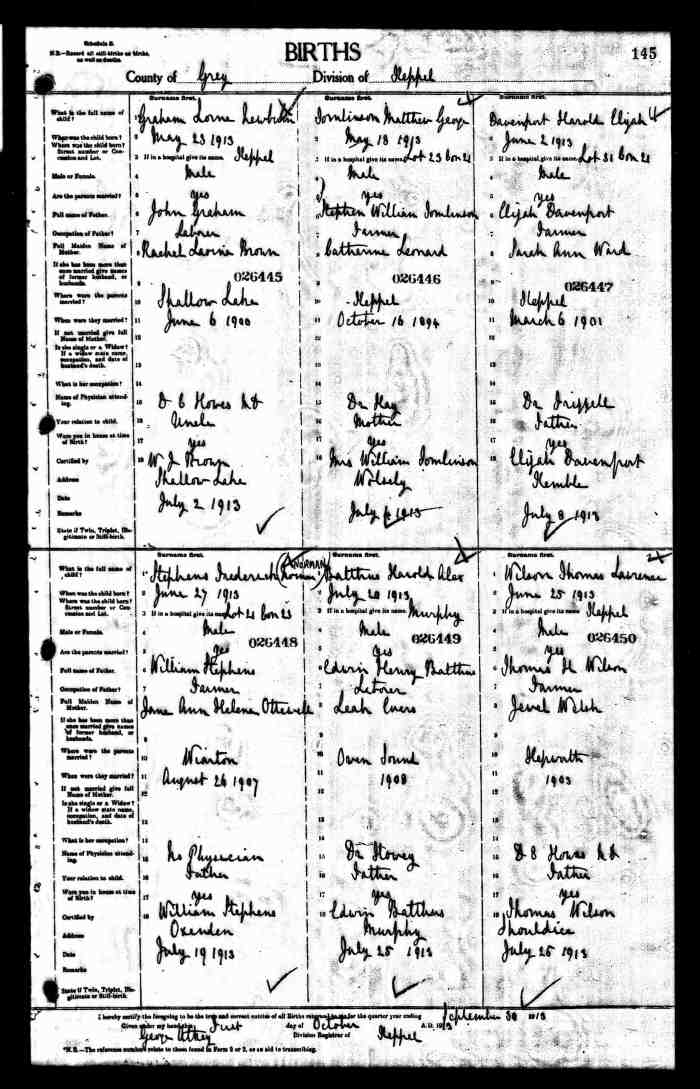 Schedule B.
N.B.—Record all still-births as births, as well as deaths.
BIRTHS
145
County of Grey Division of Keppel
Surname first. Surname first. Surname first.
What is the full name of child? 1 Graham Lorne 1 Tomlinson Matthew George 1 Davenport Harold Elijah
When was the child born? 2 May 23 1913 2 May 18 1913 2 June 2 1913
Where was the child born? Street number or Concession and Lot. 3 If in a hospital give its name. Keppel 3 If in a hospital give its name. Lot 23 Con 21 3 If in a hospital give its name. Lot 31 Con 21
Male or Female. 4 Male 4 Male 4 Male
Are the parents married? 5 yes 5 yes 5 yes
Full name of Father. 6 John Graham 6 Stephen William Tomlinson 6 Elijah Davenport
Occupation of Father? 7 Laborer 7 Farmer 7 Farmer
Full Maiden Name of Mother. 8 Rachel Lavina Brown 8 Catherine Leonard 8 Sarah Ann Ward
If she has been more than once married give names of former husband, or husbands. 9 026445 9 026446 9 026447
Where were the parents married? 10 Shallow Lake 10 Keppel 10 Keppel
When were they married? 11 June 6 1900 11 October 16 1894 11 March 6 1901
If not married give full Name of Mother. 12 12 12
Is she single or a Widow? If a widow state name, occupation, and date of husband's death. 13 13 13
What is her occupation? 14 14 14
Name of Physician attending. 15 Howes M D 15 Dr Hay 15 Dr
Your relation to child. 16 Uncle 16 Mother 16 Father
Were you in house at time of Birth? 17 yes 17 yes 17 yes
Certified by 18 W J Brown 18 Mrs William Tomlinson 18 Elijah Davenport
Address Shallow Lake Wolsely Kemble
Date July 2 1913 July 1913 July 8 1913
Remarks
State if Twin, Triplet, Illegitimate or Still-birth.
Surname first. Surname first. Surname first.
What is the full name of child? 1 Stephens Frederick (NORMAN) 1 Batthus Harold Alex 1 Wilson Thomas Lawrence
When was the child born? 2 June 27 1913 2 July 20 1913 2 June 25 1913
Where was the child born? Street number or Concession and Lot. 3 If in a hospital give its name. Lot 21 Con 23 3 If in a hospital give its name. Murphy 3 If in a hospital give its name. Keppel
Male or Female. 4 Male 4 Male 4 Male
026448 026449 026450
Are the parents married? 5 yes 5 yes 5 yes
Full name of Father. 6 William Stephens 6 Edwin Henry Batthus 6 Thomas H Wilson
Occupation of Father? 7 Farmer 7 Laborer 7 Farmer
Full Maiden Name of Mother. 8 Jane Ann Helena 8 Leah Evers 8 Jewel Welsh
If she has been more than once married give names of former husband, or husbands. 9 9 9
Where were the parents married? 10 Wiarton 10 Owen Sound 10 Hepworth
When were they married? 11 August 26 1907 11 1908 11 1903
If not married give full Name of Mother. 12 12 12
Is she single or a Widow? If a widow state name, occupation, and date of husband's death. 13 13 13
What is her occupation? 14 14 14
Name of Physician attending. 15 No Physician 15 Dr 15 Howes M D
Your relation to child. 16 Father 16 Father 16 Father
Were you in house at time of Birth? 17 yes 17 yes 17 yes
Certified by 18 William Stephens 18 Edwin Batthus 18 Thomas Wilson
Address Oxenden Murphy Shouldice
Date July 19 1913 July 25 1913 July 25 1913
Remarks
State if Twin, Triplet, Illegitimate or Still-birth.
I hereby certify the foregoing to be the true and correct entries of all Births returned to me for the quarter year ending September 30 1913
Given under my hand this First day of October A.D. 1913
George Atkey Division Registrar of Keppel
*N.B.—The reference numbers relate to those found in Form 2 or 3, as an aid to transcribing.